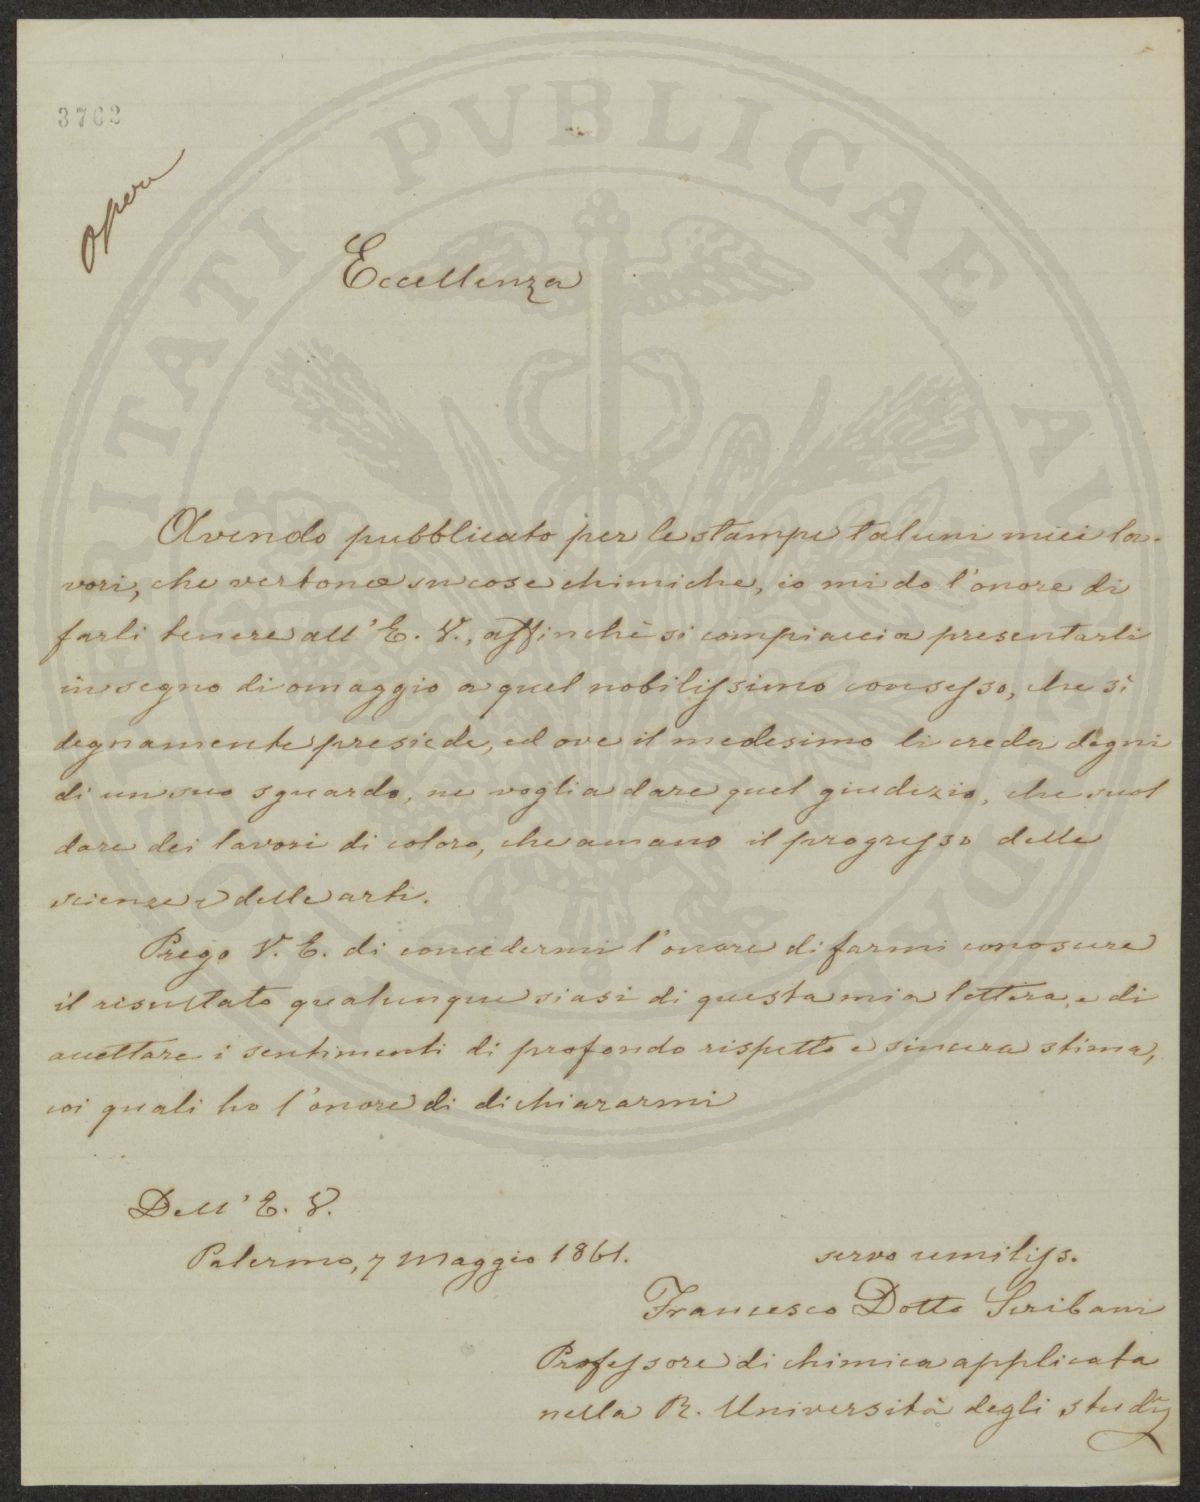 3762
Opere
Eccellenza
Avendo pubblicato per le stampe taluni miei la-
vori, che vertono su cose chimiche, io mi do l'onore di
farli tenere all'E. V., affinchè si compiaccia presentarli
in segno di omaggio a quel nobilissimo consesso, che sì
degnamente presiede, ed ove il medesimo li creda degni
di un suo sguardo, ne voglia dare quel giudizio, che suol
dare dei lavori di coloro, che amano il progresso delle
scienze e delle arti.
Prego V. E. di concedermi l'onore di farmi conoscere
il risultato qualunque siasi di questa mia lettera, e di
accettare i sentimenti di profondo rispetto e sincera stima,
coi quali ho l'onore di dichiararmi
Dell'E. V.
Palermo, 7 Maggio 1861.
servo umiliss.
Francesco Dotto Scribani
Professore di chimica applicata
nella R. Università degli studj